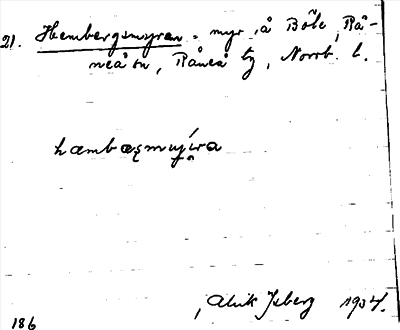 21. Hembergsmyran. myr å Böle, Rå-
neå sn, Råneå tg, Norrb. l.
hæmbæʂmyi̯ra
Alrik Isberg 1934.
186